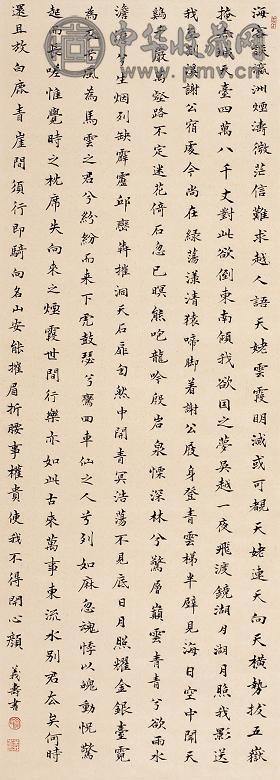 中华收藏网
www.pmv.cn
海客談瀛洲煙濤微茫信難求越人語天姥雲霞明滅或可覩天姥連天向天橫勢拔五嶽
掩赤城天臺四萬八千丈對此欲倒東南傾我欲因之夢吳越一夜飛渡鏡湖月湖月照我影送
我至剡溪謝公宿處今尚在綠蕩漾清猿啼脚著謝公屐身登青雲梯半壁見海日空中聞天
鷄千巖萬壑路不定迷花倚石忽已暝熊咆龍吟殷岩泉慄深林兮驚層巔雲青青兮欲雨水
澹澹兮生烟列缺霹靂邱巒崩摧洞天石扉訇然中開青冥浩蕩不見底日月照耀金銀臺霓
為衣兮風為馬雲之君兮紛紛而来下虎鼓瑟兮鸞回車仙之人兮列如麻忽魂悸以魄動怳驚
起而長嗟惟覺時之枕席失向來之煙霞世間行樂亦如此古來萬事東流水別君去矣何時
還且放白鹿青崖間須行即騎向名山安能摧眉折腰事權貴使我不得開心顏 義壽書